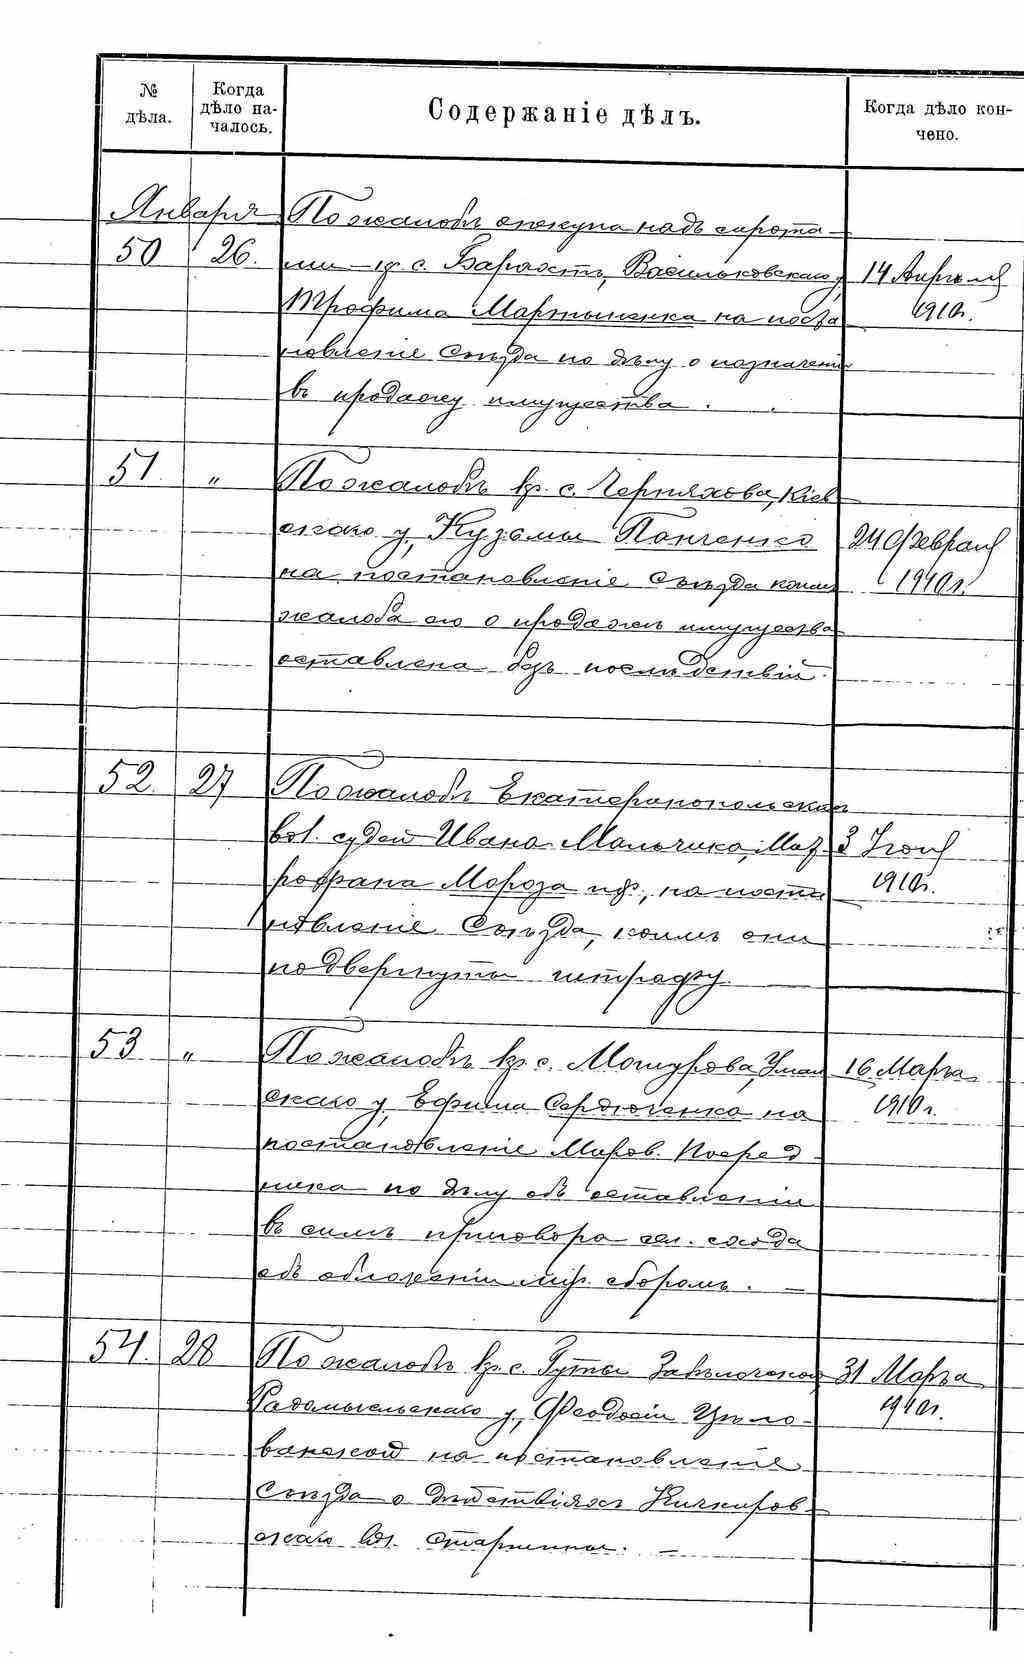 № дѣла.
Когда дѣло началось.
Содержаніе дѣлъ.
Когда дѣло кончено.
Января
50 26.
По жалобѣ опекуна надъ сирота-
ми кр. с. Бархостъ, Васильковскаго у,
Трофима Мартыненка на поста
новленіе Съѣзда по дѣлу о назначеніи
въ продажу имущества.
14 Апрѣля
1910г.
51. "
По жалобѣ кр. с. Черняхова, Кіев
скаго у, Кузьмы Панченко
на постановленіе Съѣзда коимъ
жалоба его о продажѣ имущества
оставлена безъ послѣдствій.
24 Февраля
1910г.
52. 27
По жалобѣ Екатеринопольских
вол. судей Ивана Мальчика,
Мороза и др., на поста
новленіе Съѣзда, коимъ они
подвергнуты штрафу.
3 Іюня
1910г.
53 "
По жалобѣ кр. с. Мошурова, Уман
скаго у, Ефима Сердюченка на
постановленіе Миров. Посред
ника по дѣлу объ оставленіи
въ силѣ приговора сел. схода
объ обложеніи мір. сборомъ. —
16 Марта
1910г.
54. 28
По жалобѣ кр. с. Гуты Забѣлочской
Радомысльскаго у, Феодосіи Цѣло-
ванской на постановленіе
Съѣзда о дѣйствіяхъ Кичкиров-
скаго вол. старшины. —
31 Марта
1910г.